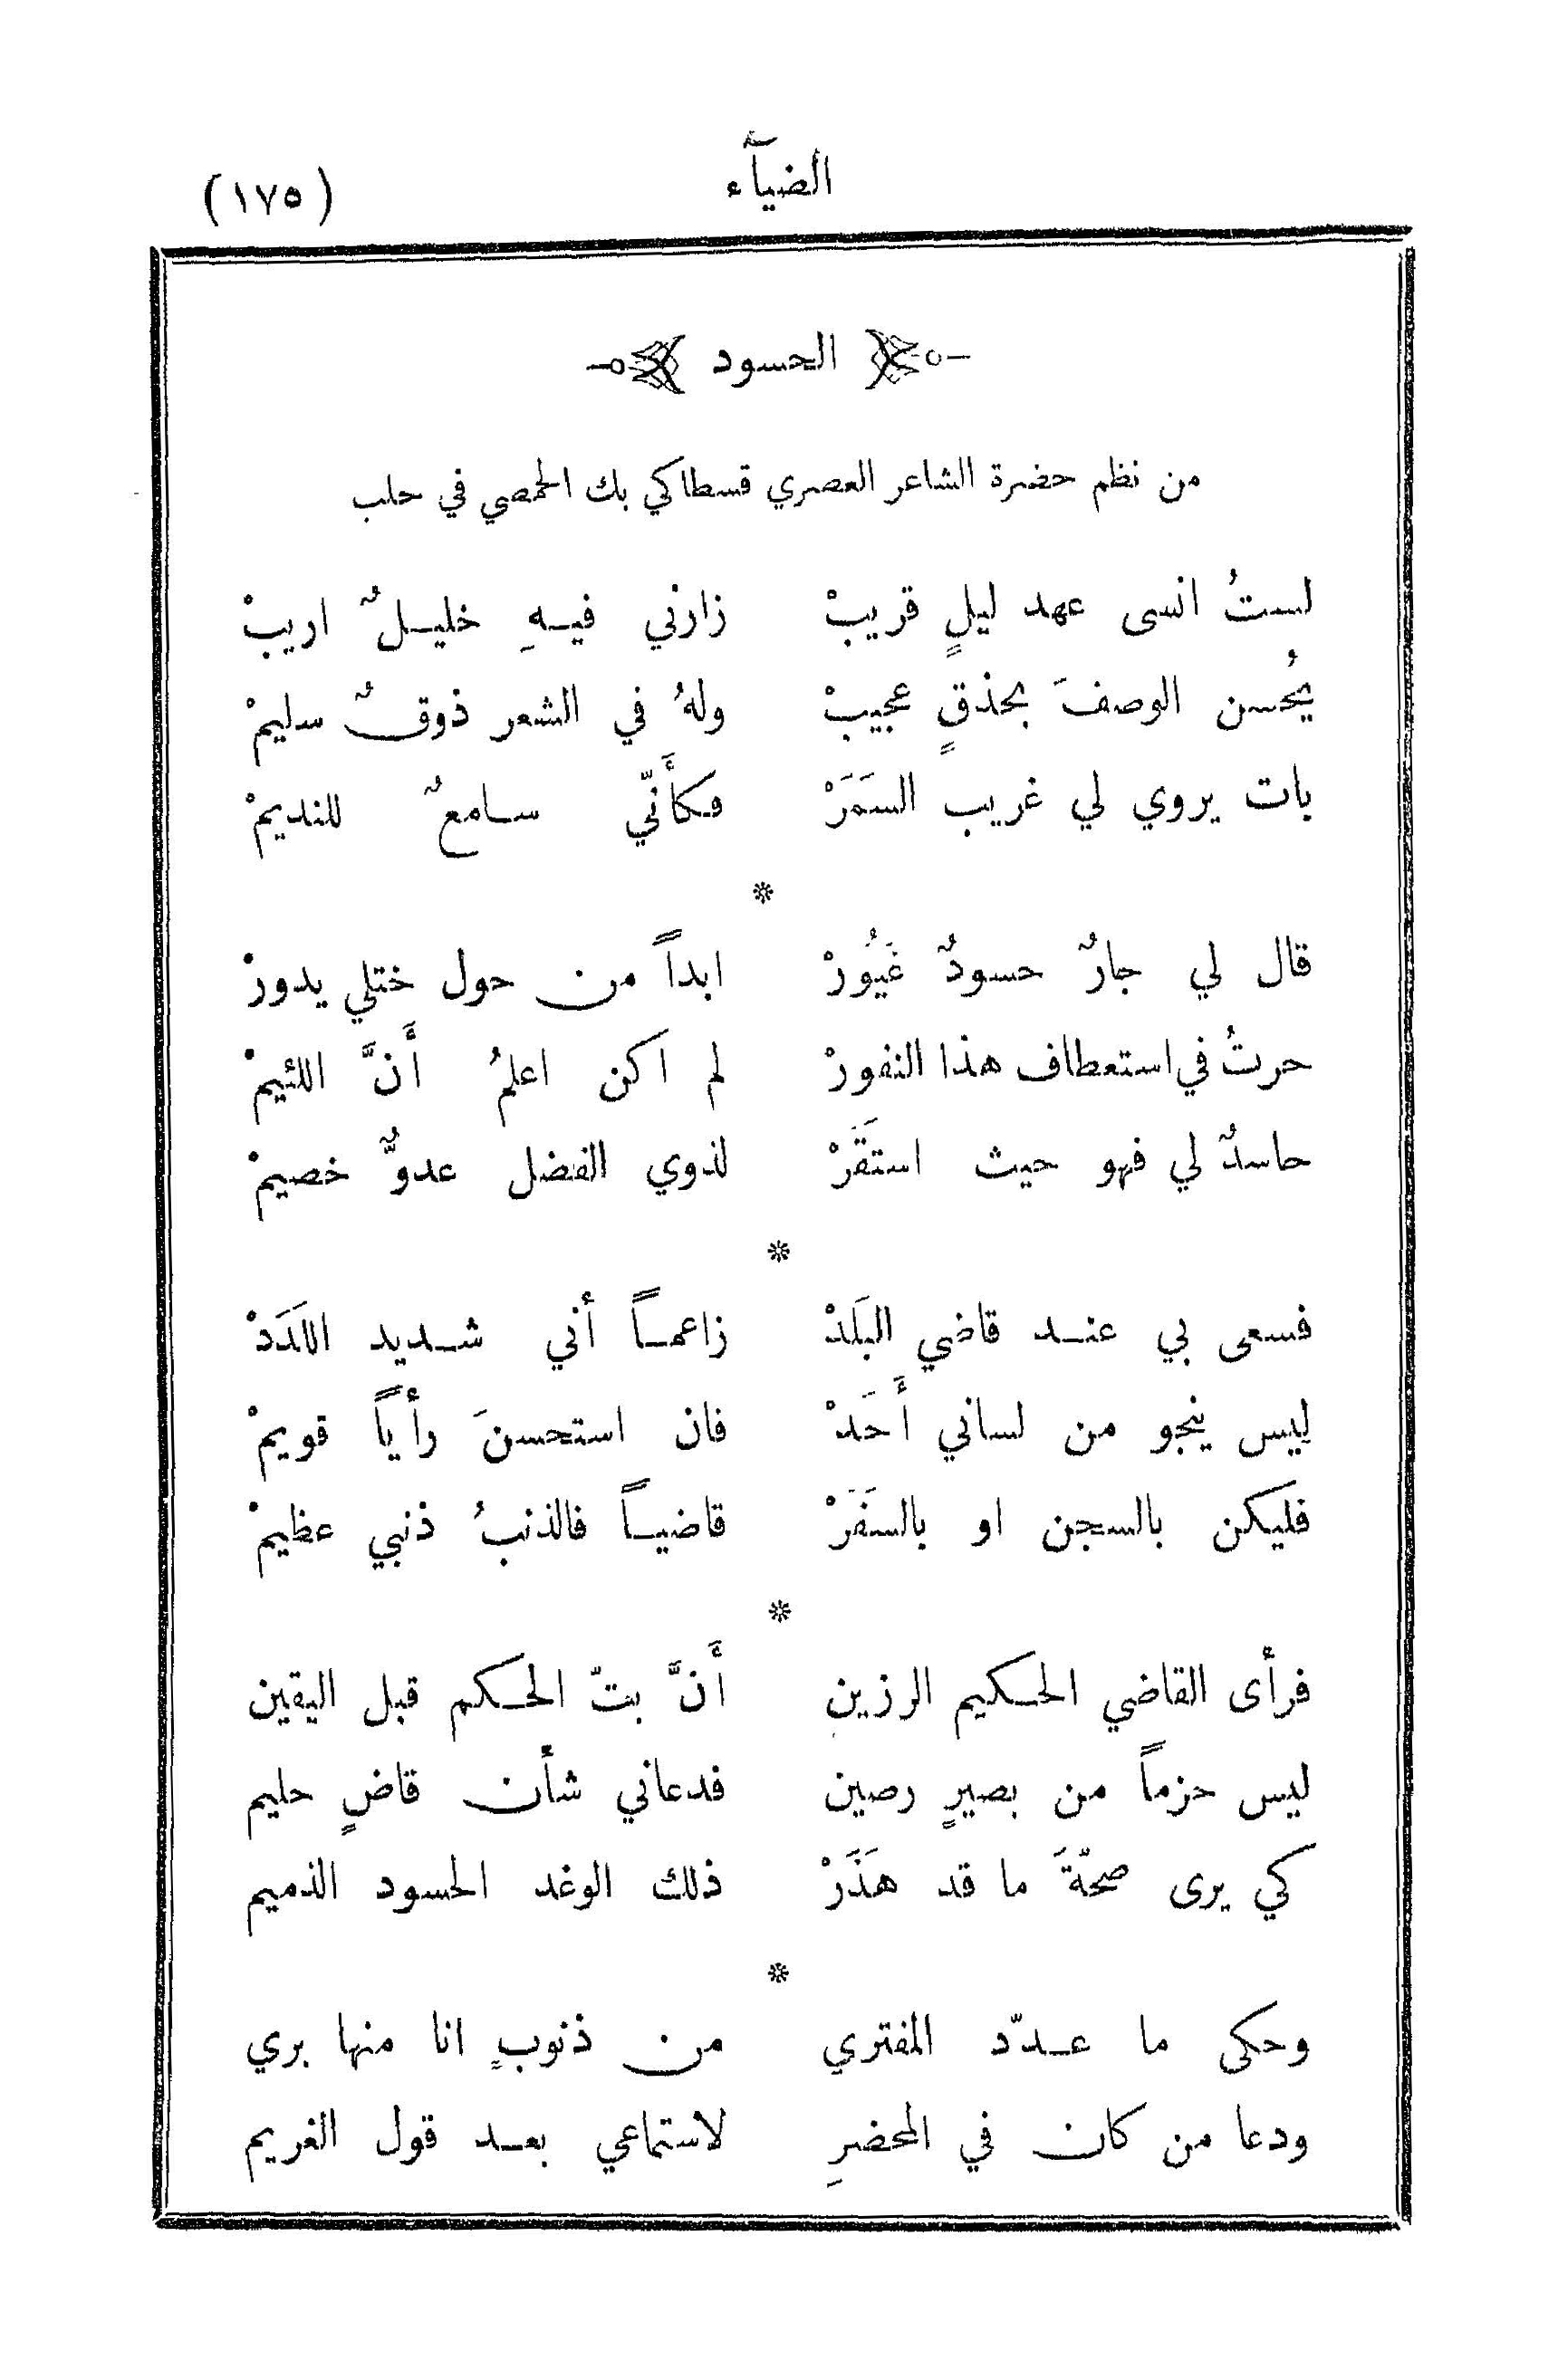 الضيآء (١٧٥)
الحسود
من نظم حضرة الشاعر العصري قسطاكي بك الحمصي في حلب
لستُ انسى عهد ليلٍ قريبْ زارني فيهِ خليلٌ اريبْ
يُحسن الوصفَ بحذقٍ عجيبْ ولهُ في الشعر ذوقٌ سليمْ
بات يروي لي غريب السمَرْ فكأَنّي سامعٌ للنديمْ
*
قال لي جارٌ حسودٌ غَيُورْ ابداً من حول ختلي يدورْ
حرتُ في استعطاف هذا النفورْ لم اكن اعلمُ أَنَّ اللئيمْ
حاسدٌ لي فهو حيث استَقَرْ لذوي الفضل عدوٌّ خصيمْ
*
فسعى بي عند قاضي البلَدْ زاعماً أني شديد اللَدَدْ
ليس ينجو من لساني أَحَدْ فان استحسنَ رأياً قويمْ
فليكن بالسجن او بالسفَرْ قاضياً فالذنبُ ذنبي عظيمْ
*
فرأى القاضي الحكيم الرزين أَنَّ بتّ الحكم قبل اليقين
ليس حزماً من بصيرٍ رصين فدعاني شأن قاضٍ حليم
كي يرى صحّةَ ما قد هَذَرْ ذلك الوغد الحسود الذميم
*
وحكى ما عدّد المفتري من ذنوبٍ انا منها بري
ودعا من كان في المحضرِ لاستماعي بعد قول الغريم